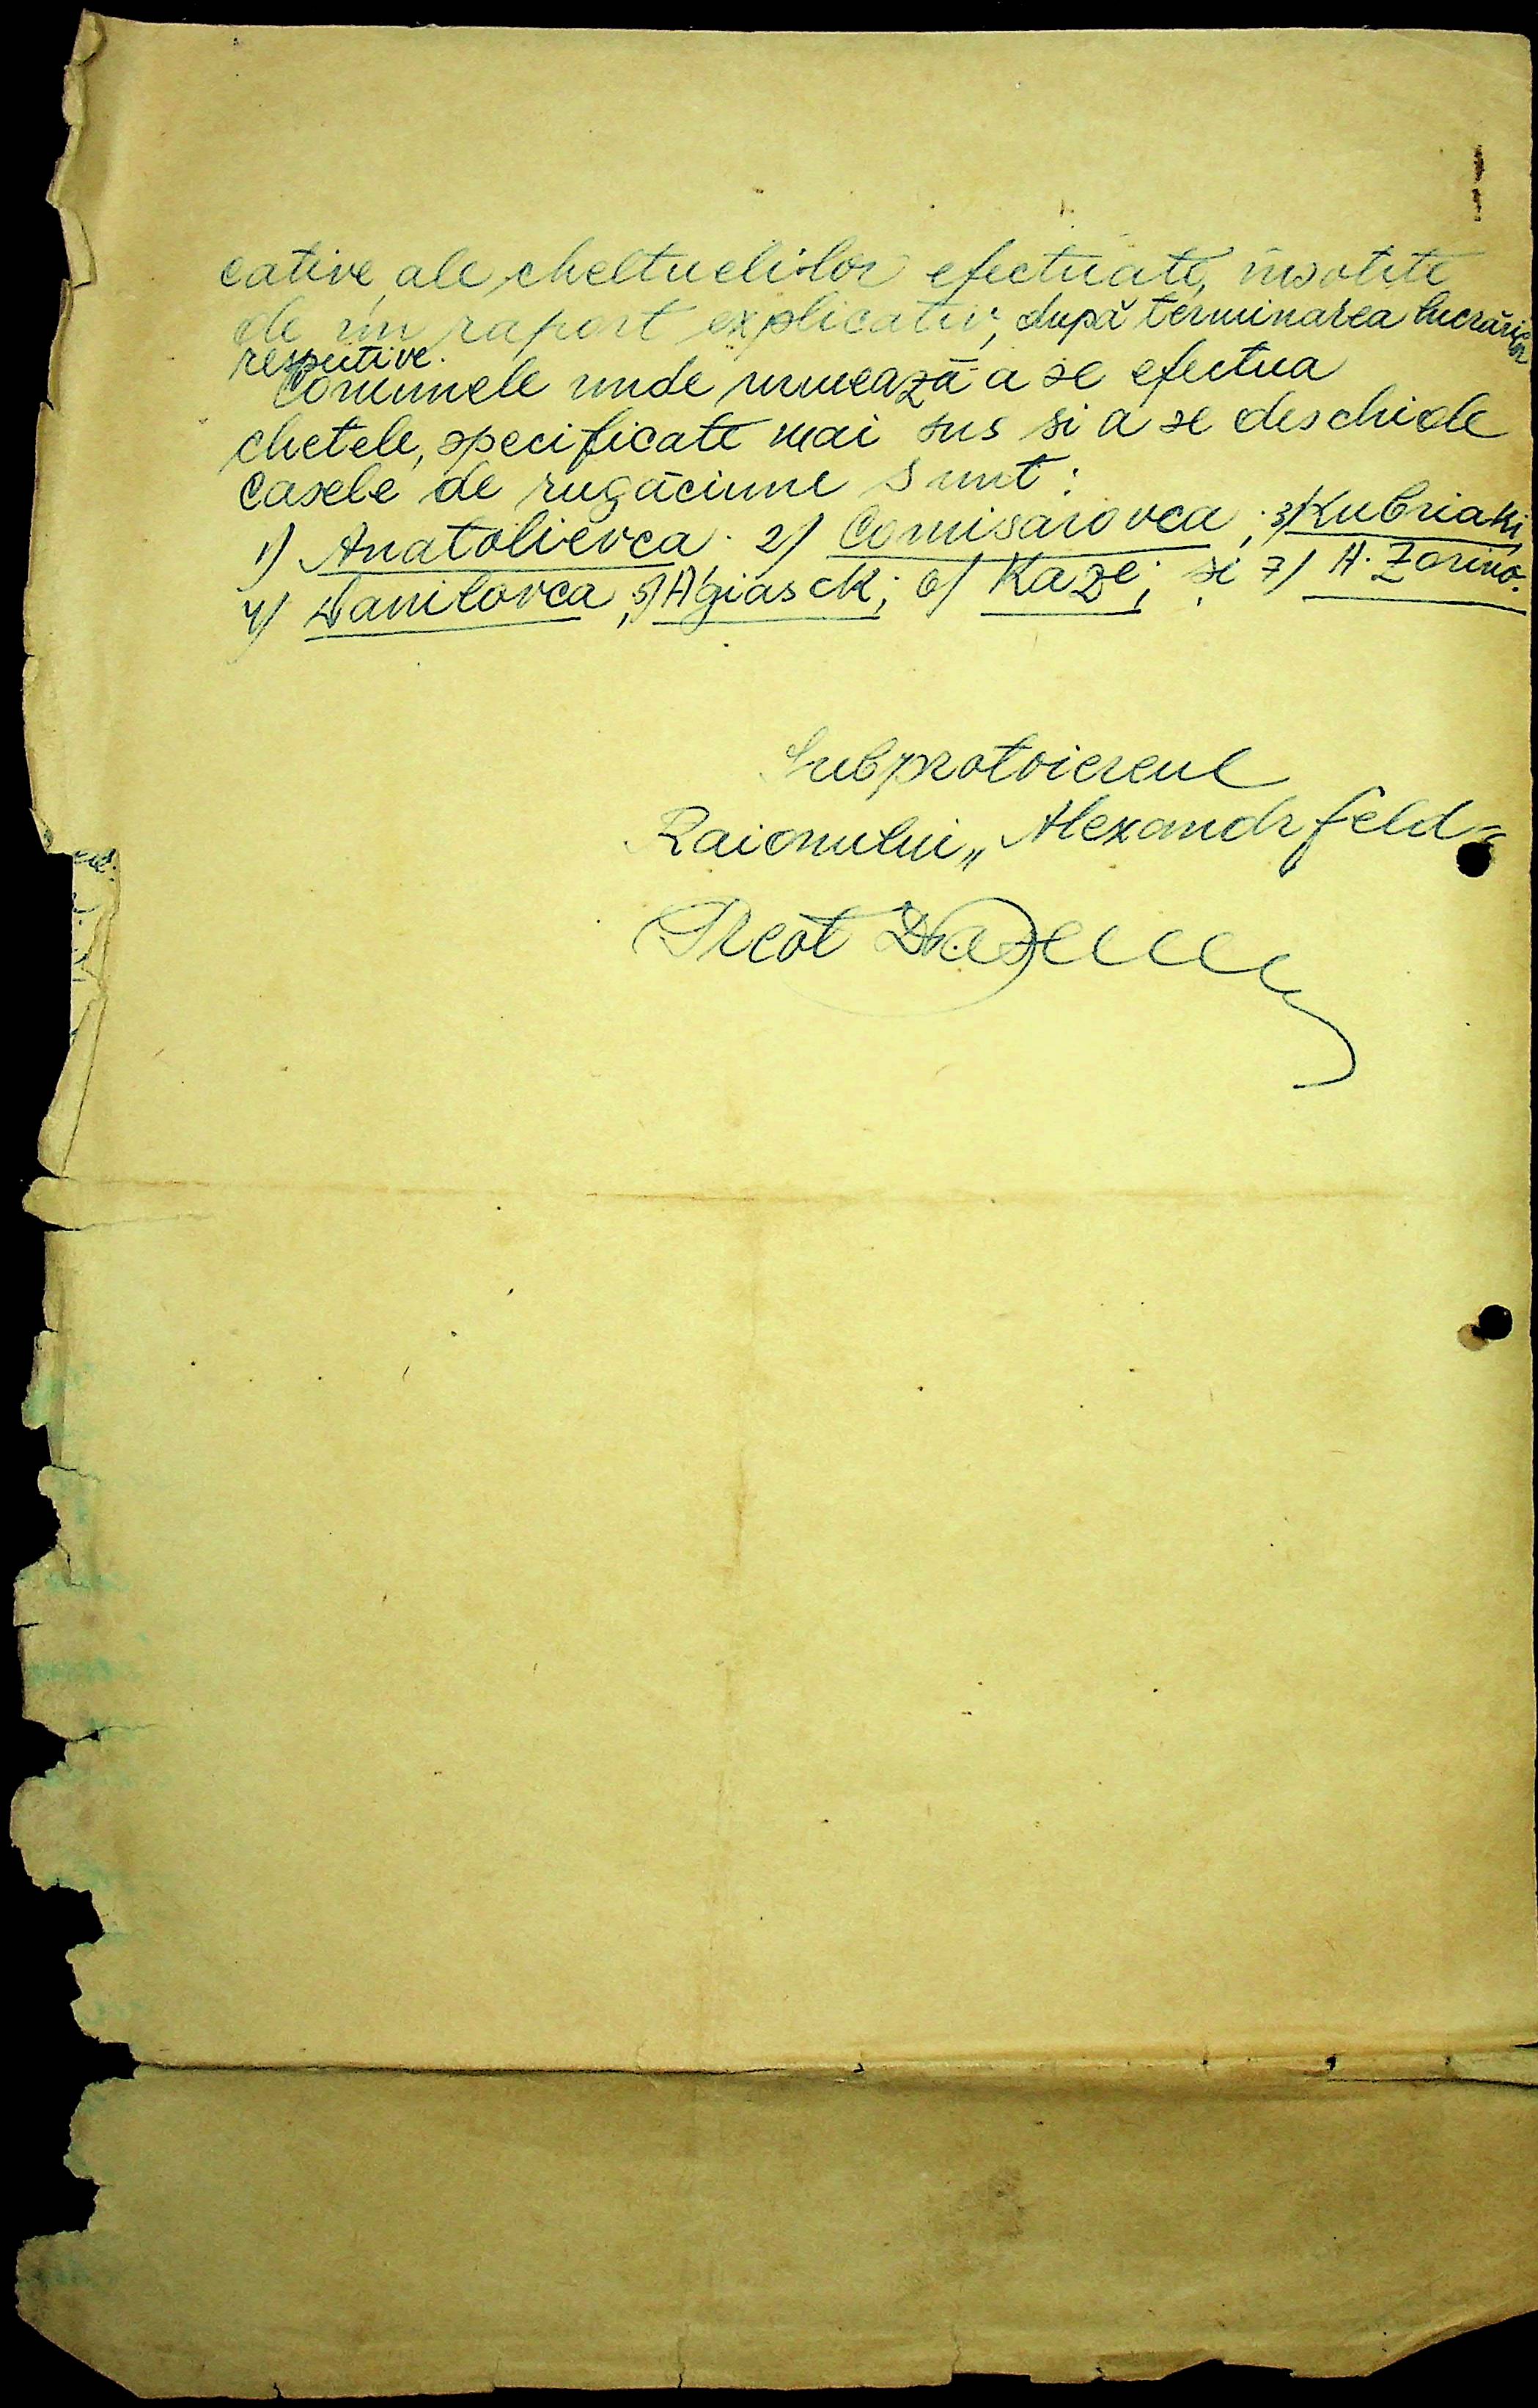 cative ale cheltuelilor efectuate, însotite
de un raport explicativ, după terminarea lucrărilor
respective.
Comunele unde urmează a se efectua
chetele, specificate mai sus si a se deschide
casele de rugăciune sunt:
1) Anatolievca. 2) Comisarovca; 3) Kubriaki
4) Danilovca; 5) Agiasck; 6) Kaze; și 7) H. Zorino.
Subprotoiereul
Raionului „Alexandrfeld"
Preot